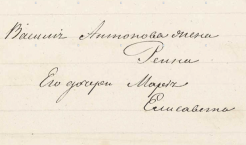 Василь Антонова жена
Ренна
Его дочери Марья
Елисавета